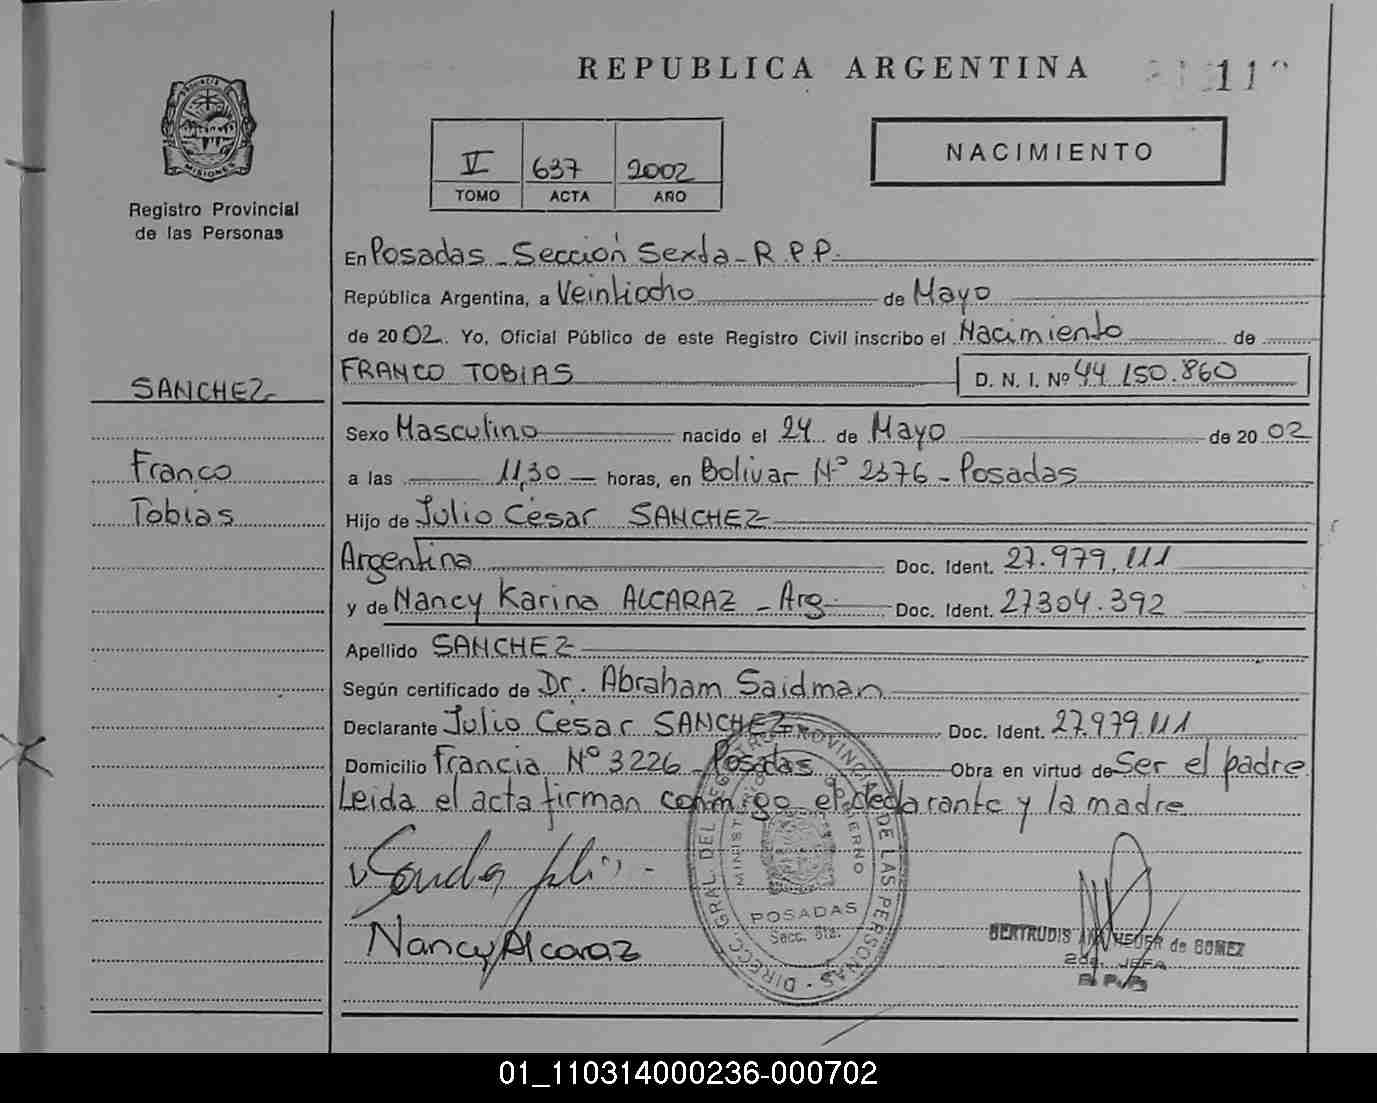 REPUBLICA ARGENTINA
11
PROVINCIA
MISIONES
Registro Provincial
de las Personas
V 637 2002
TOMO ACTA AÑO
NACIMIENTO
En Posadas - Sección Sexta - R.P.P.
República Argentina, a Veintiocho de Mayo
de 2002. Yo, Oficial Público de este Registro Civil inscribo el Nacimiento de
FRANCO TOBIAS D. N. I. Nº 44.150.860
SANCHEZ
Sexo Masculino nacido el 24 de Mayo de 2002
Franco
a las 11,30 horas, en Bolivar Nº 2376 - Posadas
Tobias
Hijo de Julio César SANCHEZ
Argentina Doc. Ident. 27.979.111
y de Nancy Karina ALCARAZ - Arg Doc. Ident. 27304.392
Apellido SANCHEZ
Según certificado de Dr. Abraham Saidman
Declarante Julio César SANCHEZ Doc. Ident. 27.979.111
Domicilio Francia Nº 3226 - Posadas Obra en virtud de Ser el padre
Leida el acta firman conmigo el declarante y la madre
Nancy Alcaraz
DIRECC. GRAL. DEL REGISTRO PROVINCIAL DE LAS PERSONAS
MINISTERIO GOBIERNO
POSADAS
Secc. 6ta.
GERTRUDIS ANA HEUER de GOMEZ
2da. JEFA
R.P.P.
01_110314000236-000702